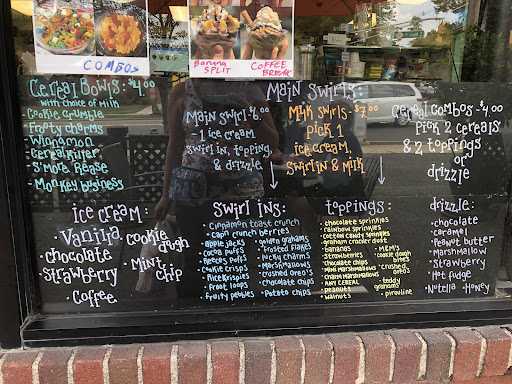 COMBOS
BANANA SPLIT
COFFEE BREAK
Cereal Bowls - $4.00
with choice of milk
• Cookie crumble
• Frosty charms
• Winnamon
• Cereal killer
• S'more Rease
• Monkey business
Main Swirls:
Main Swirl - $6.00
- 1 ice cream,
swirl in, topping,
& drizzle
Milk Swirls - $7.00
pick 1
ice cream,
swirl in & milk
Cereal Combos - $4.00
Pick 2 cereals
& 2 toppings
or
drizzle
ice cream:
• Vanilla
• chocolate
• Strawberry
• Coffee
• cookie dough
• Mint chip
Swirl ins:
• cinnamon toast crunch
• cap'n crunch berries
• apple jacks
• cocoa puffs
• Reeces puffs
• cookie crisps
• Rice Krispies
• Froot loops
• fruity pebbles
• golden grahams
• frosted flakes
• lucky charms
• Marshmallows
• crushed oreo's
• chocolate chips
• potato chips
toppings:
• chocolate sprinkles
• rainbow sprinkles
• cotton candy sprinkles
• graham cracker dust
• bananas
• strawberries
• chocolate chips
• mini marshmallows
• charm marshmallows
• ANY CEREAL
• peanuts
• walnuts
• M&M's
• cookie dough bites
• crushed oreos
• teddy grahams
• pirouline
drizzle:
• chocolate
• caramel
• Peanut butter
• Marshmallow
• Strawberry
• Hot fudge
• Nutella • Honey